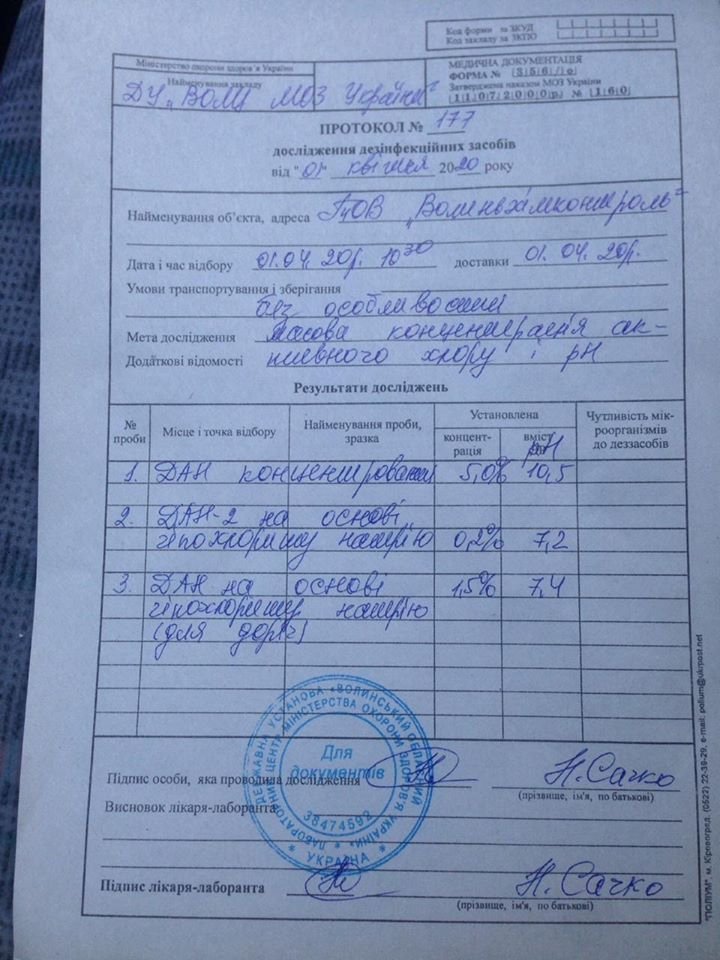 Код форми за ЗКУД
Код закладу за ЗКПО
Міністерство охорони здоров'я України
Найменування закладу
ДУ „ВОЛЦ МОЗ України"
МЕДИЧНА ДОКУМЕНТАЦІЯ
ФОРМА № 356/о
Затверджена наказом МОЗ України
11072000р № 160
ПРОТОКОЛ № 177
дослідження дезінфекційних засобів
від "01" квітня 2020 року
Найменування об'єкта, адреса ТзОВ „Волиньхімконтроль"
Дата і час відбору 01.04.20р. 10 30 доставки 01.04.20р.
Умови транспортування і зберігання
без особливостей
Мета дослідження масова концентрація ак-
Додаткові відомості тивного хлору і рН
Результати досліджень
№ проби Місце і точка відбору Найменування проби, зразка Установлена концент-рація вміст рН Чутливість мік-роорганізмів до деззасобів
1. ДАН концентрований 5,0% 10,5
2. ДАН-2 на основі
гіпохлориту натрію 0,2% 7,2
3. ДАН на основі 1,5% 7,4
гіпохлориту натрію
(для доріг)
ДЕРЖАВНА УСТАНОВА «ВОЛИНСЬКИЙ ОБЛАСНИЙ
ЛАБОРАТОРНИЙ ЦЕНТР МІНІСТЕРСТВА ОХОРОНИ ЗДОРОВ'Я УКРАЇНИ»
Для
документів
38474592
* УКРАЇНА *
Підпис особи, яка проводила дослідження Н.Сачко
(прізвище, ім'я, по батькові)
Висновок лікаря-лаборанта
Підпис лікаря-лаборанта Н.Сачко
(прізвище, ім'я, по батькові)
"ПОЛІУМ", м. Кіровоград, (0522) 22-39-29, e-mail: polium@ukrpost.net